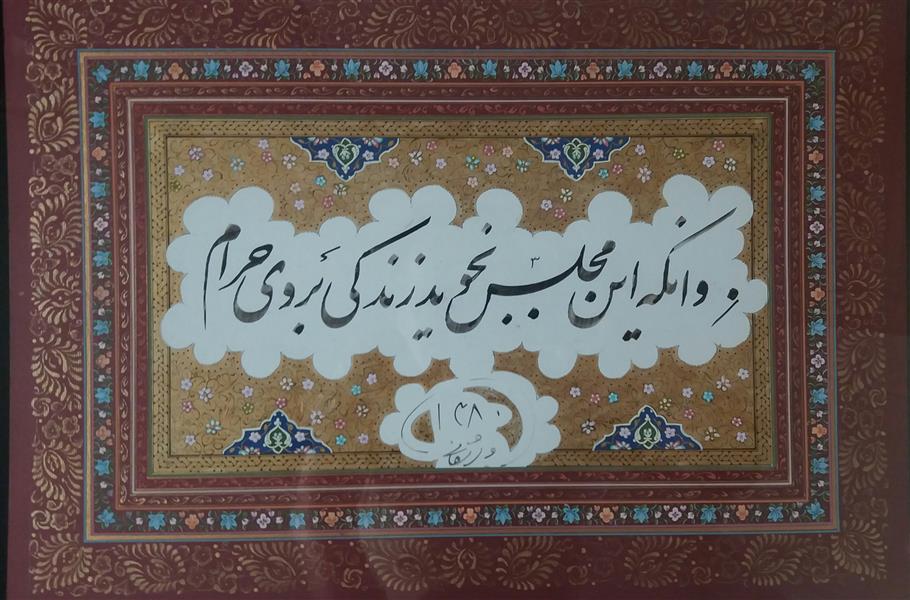 وانکه این مجلس نجوید زندگی بر وی حرام
۱۳۸۰